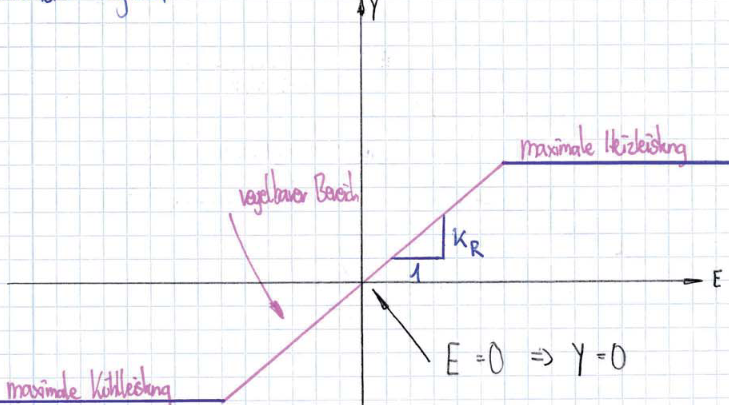 Y
maximale Heizleistung
regelbarer Bereich
K_R
1
E
E = 0 ⇒ Y = 0
maximale Kühlleistung